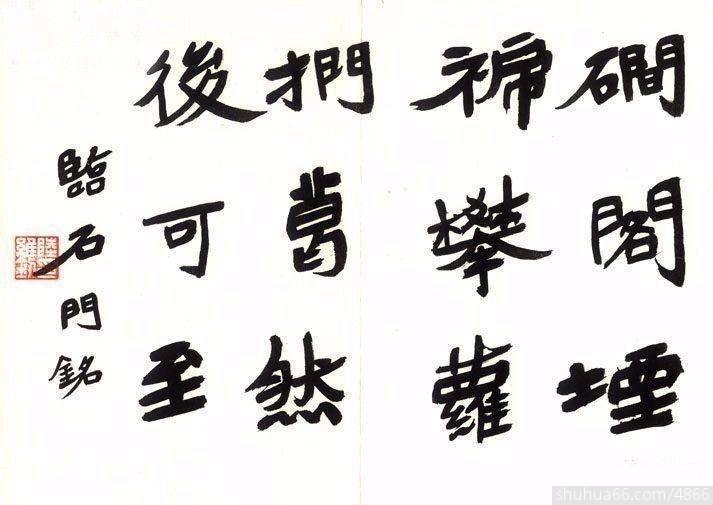 磵閣堙
禘攀蘿
捫葛然
後可至
臨石門銘
陸維釗
shuhua66.com/4866